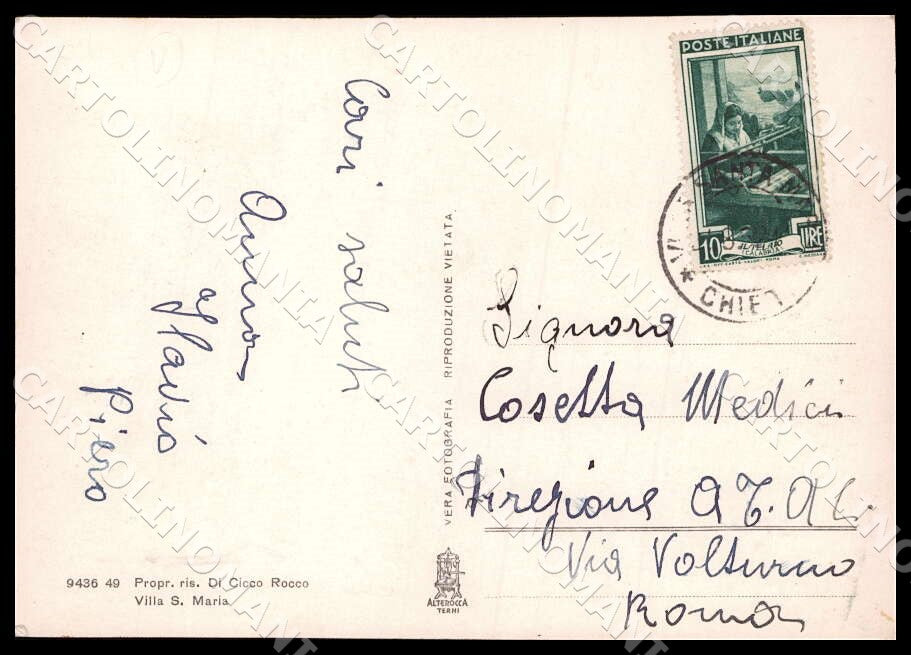 Cari saluti
Anna
Piero
9436 49 Propr. ris. Di Cicco Rocco
Villa S. Maria
VERA FOTOGRAFIA RIPRODUZIONE VIETATA
ALTEROCCA
TERNI
POSTE ITALIANE
10 LIRE
(CALABRIA)
CHIETI
Signora
Cosetta Medici
Direzione A.T.A.C.
Via Volturno
Roma
CARTOLINOMANIA